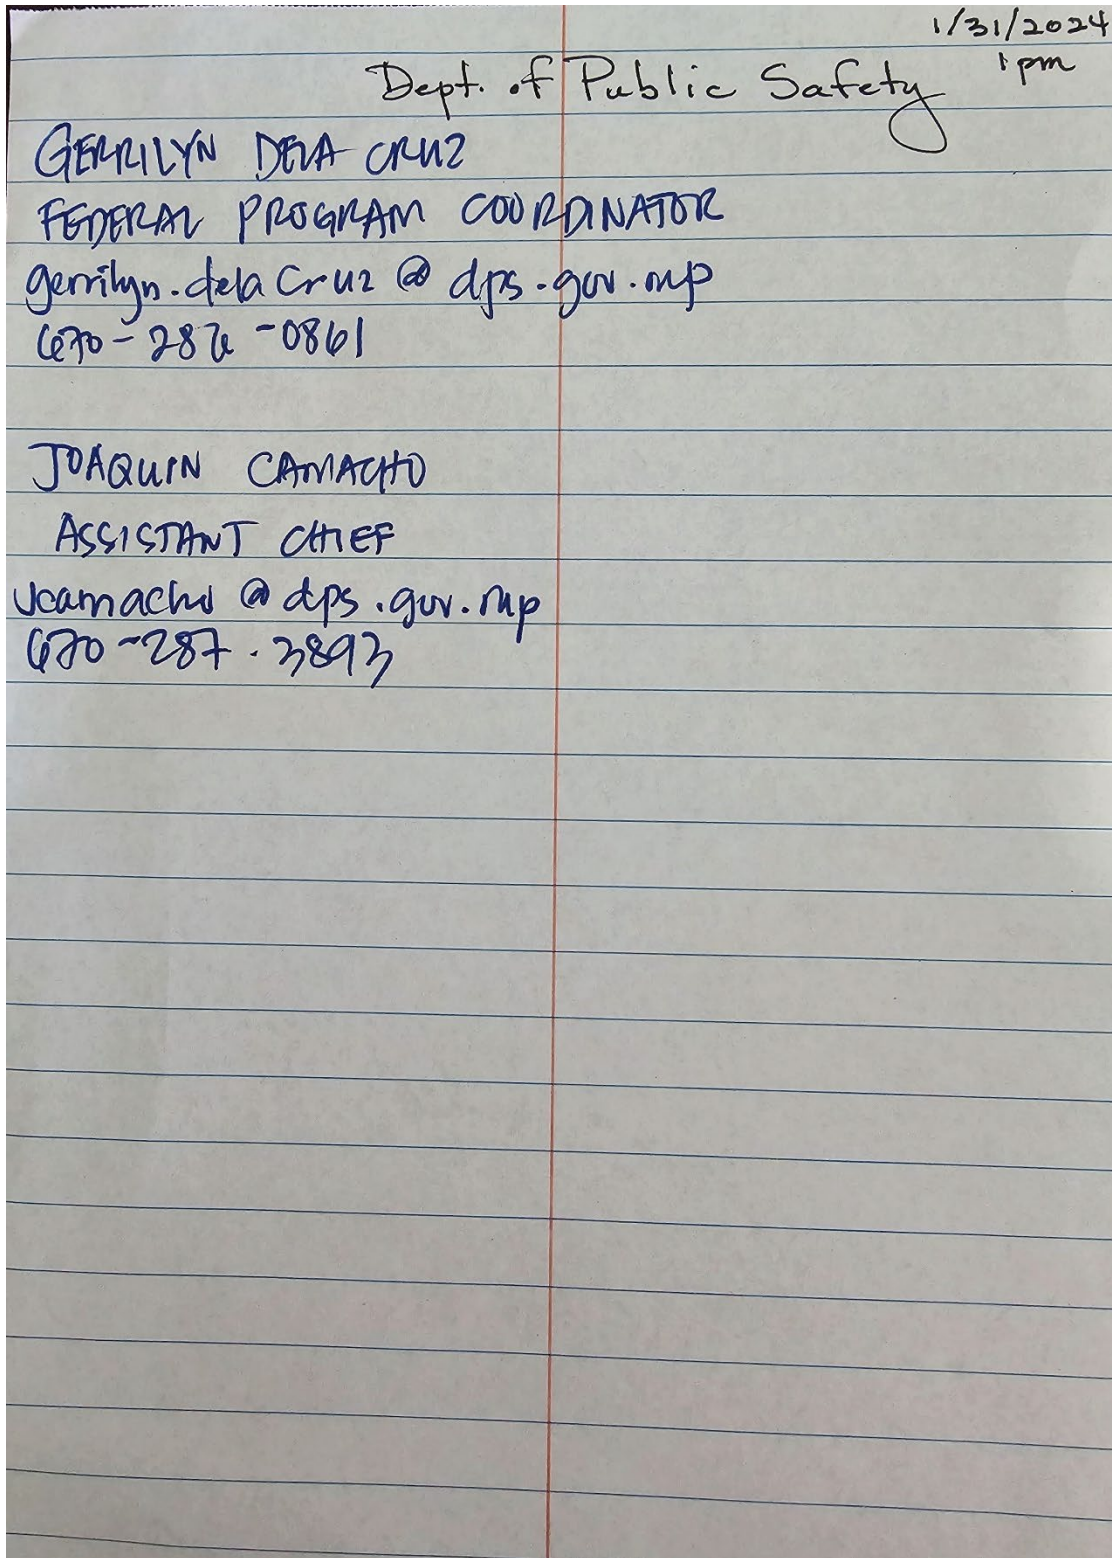 1/31/2024
1pm
Dept. of Public Safety
GERRILYN DELA CRUZ
FEDERAL PROGRAM COORDINATOR
gerrilyn.delacruz@dps.gov.mp
670-286-0861
JOAQUIN CAMACHO
ASSISTANT CHIEF
jcamacho@dps.gov.mp
670-287.3893